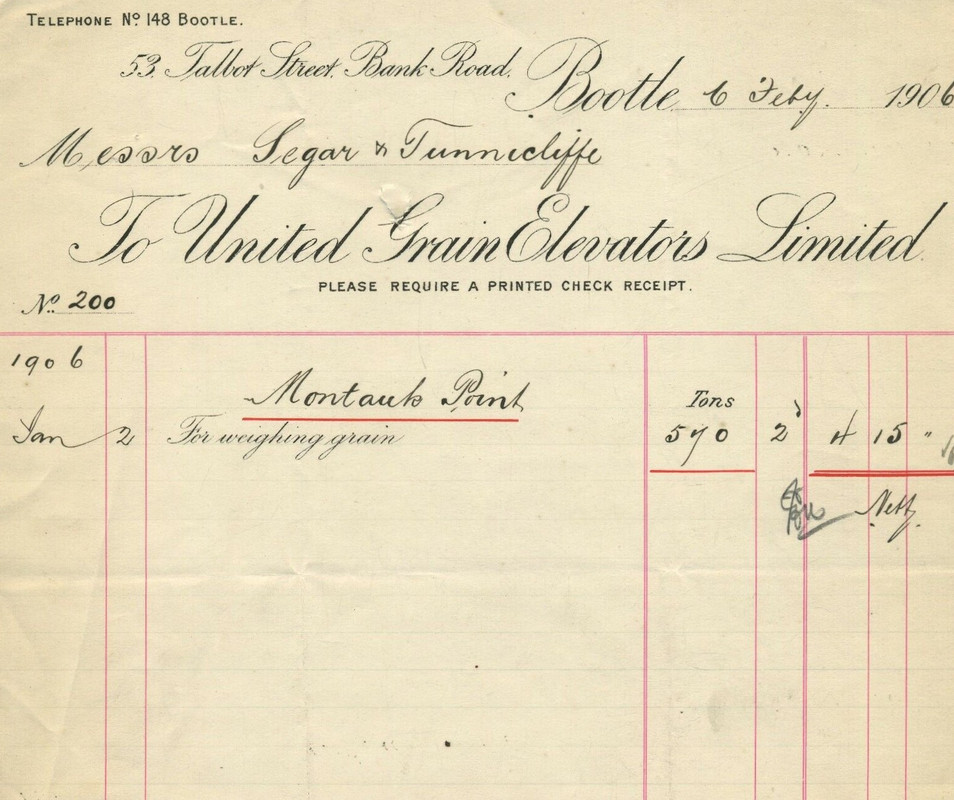 TELEPHONE Nº 148 BOOTLE.
53, Talbot Street, Bank Road,
Bootle 6 Feby. 1906
Messrs Segar & Tunnicliffe
To United Grain Elevators Limited.
PLEASE REQUIRE A PRINTED CHECK RECEIPT.
Nº 200
1906
Montauk Point
Tons
Jan 2 For weighing grain 570 2d 4 15 "
Nett